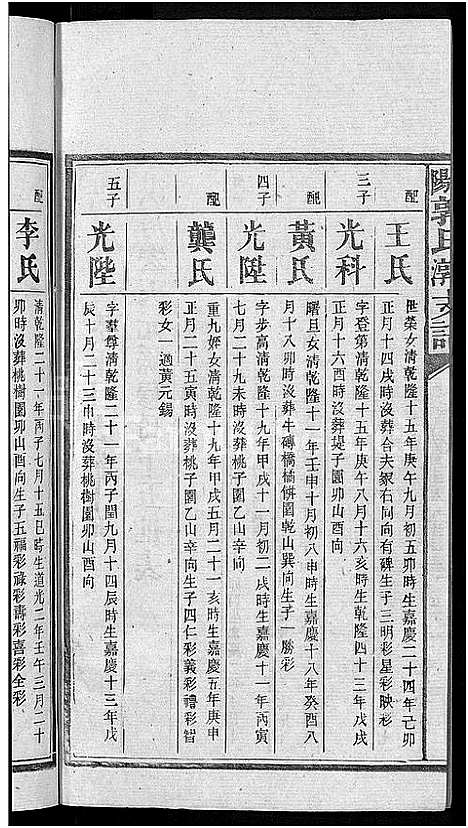 陽郭氏濂支譜
配
王氏
世榮女清乾隆十五年庚午九月初五卯時生嘉慶二十四年己卯
正月十四戌時沒葬合夫冢右向有碑生子三明彩星彩映彩
三子
光科
字登第清乾隆十五年庚午八月十六亥時生乾隆四十三年戊戌
正月十六酉時沒葬堤子園卯山酉向
配
黃氏
曙旦女清乾隆十一年壬申十月初八申時生嘉慶十八年癸酉八
月十八卯時沒葬牛磚橋橋併園乾山巽向生子一勝彩
四子
光陞
字步高清乾隆十九年甲戌十一月初二戌時生嘉慶十一年丙寅
七月二十九未時沒葬桃子園乙山辛向
配
龔氏
重九姪女清乾隆十九年甲戌五月二十一亥時生嘉慶五年庚申
正月二十五寅時沒葬桃子園乙山辛向生子四仁彩義彩禮彩智
彩女一適黃元錫
五子
光陛
字羣尊清乾隆二十一年丙子閏九月十四辰時生嘉慶十三年戊
辰十月二十三申時沒葬桃樹園卯山酉向
配
李氏
清乾隆二十一年丙子七月十五巳時生道光二年壬午三月二十
卯時沒葬桃樹園卯山酉向生子五福彩祿彩壽彩喜彩全彩